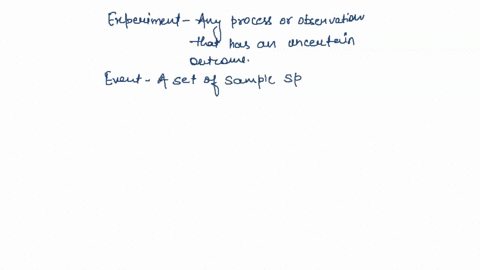 Experiment - Any process or observation
that has an uncertain
outcome.
Event - A set of sample sp